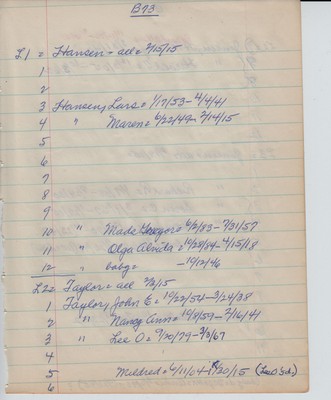 B93
L1 = Hansen - all = 2/15/15
1
2
3 Hansen, Lars = 1/17/53 - 4/4/41
4 " Maren = 6/22/49 - 2/14/15
5
6
7
8
9
10 " Made = 6/2/83 - 7/31/57
11 " Olga Alvida = 10/25/84 - 4/15/18
12 = " baby = - 10/12/46
L2 = Taylor = all 3/2/15
1 Taylor, John E = 10/22/54 - 3/24/38
2 " Nancy Ann = 10/8/59 - 2/16/41
3 " Lee O = 9/20/79 - 3/3/67
4
5 Mildred = 6/11/04 - /20/15 (Lee O's d.)
6